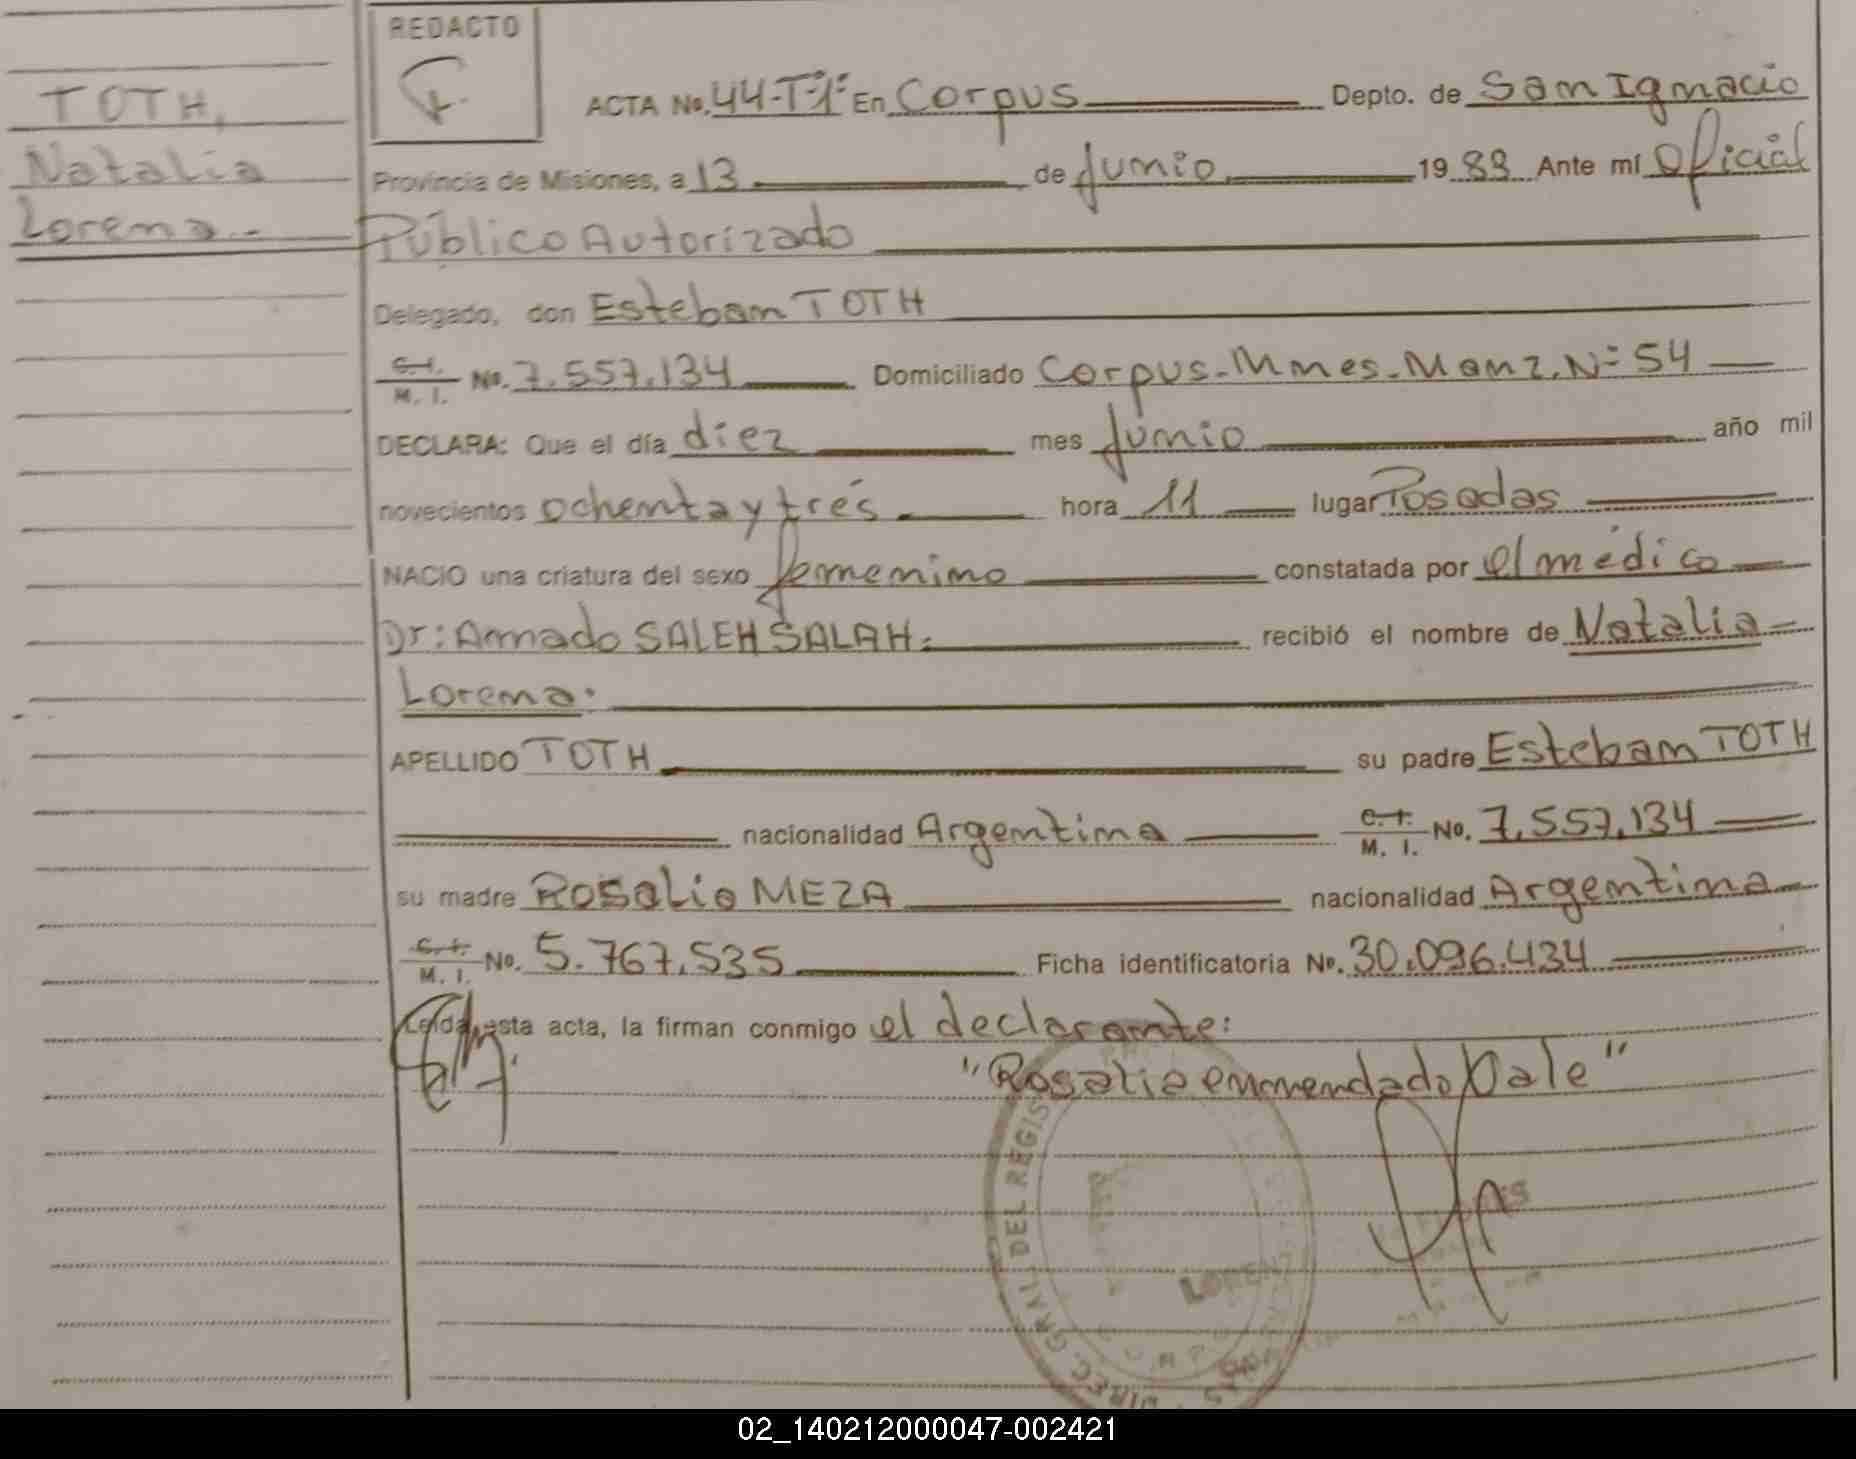 REDACTO
TOTH,
Natalia
Lorena.-
ACTA No. 44-Tº1º En Corpus Depto. de San Ignacio
Provincia de Misiones, a 13 de Junio 19 83 Ante mí Oficial
Público Autorizado
Delegado, don Esteban TOTH
C. I. / M. I. No. 7.557.134 Domiciliado Corpus-Mnes. Manz. Nº 54
DECLARA: Que el día diez mes Junio año mil
novecientos ochenta y tres hora 11 lugar Posadas
NACIO una criatura del sexo femenino constatada por el médico
Dr: Amado SALEH SALAH. recibió el nombre de Natalia
Lorena.
APELLIDO TOTH su padre Esteban TOTH
nacionalidad Argentina C. I. / M. I. No. 7.557.134
su madre Rosalia MEZA nacionalidad Argentina
C. I. / M. I. No. 5.767.535 Ficha identificatoria No. 30.096.434
Leída esta acta, la firman conmigo el declarante:
"Rosalia enmendado Vale"
DIREC. GRAL. DEL REGIS
02_140212000047-002421